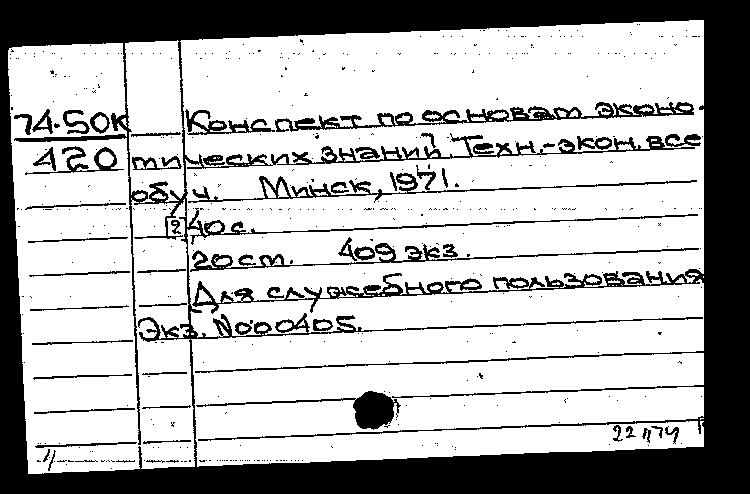 74-50к Конспект по основам эконо-
420 мических знаний. Техн.-экон. все
обуч. Минск, 1971.
240 с.
20 см. 409 экз.
Для служебного пользования
Экз. N000405.